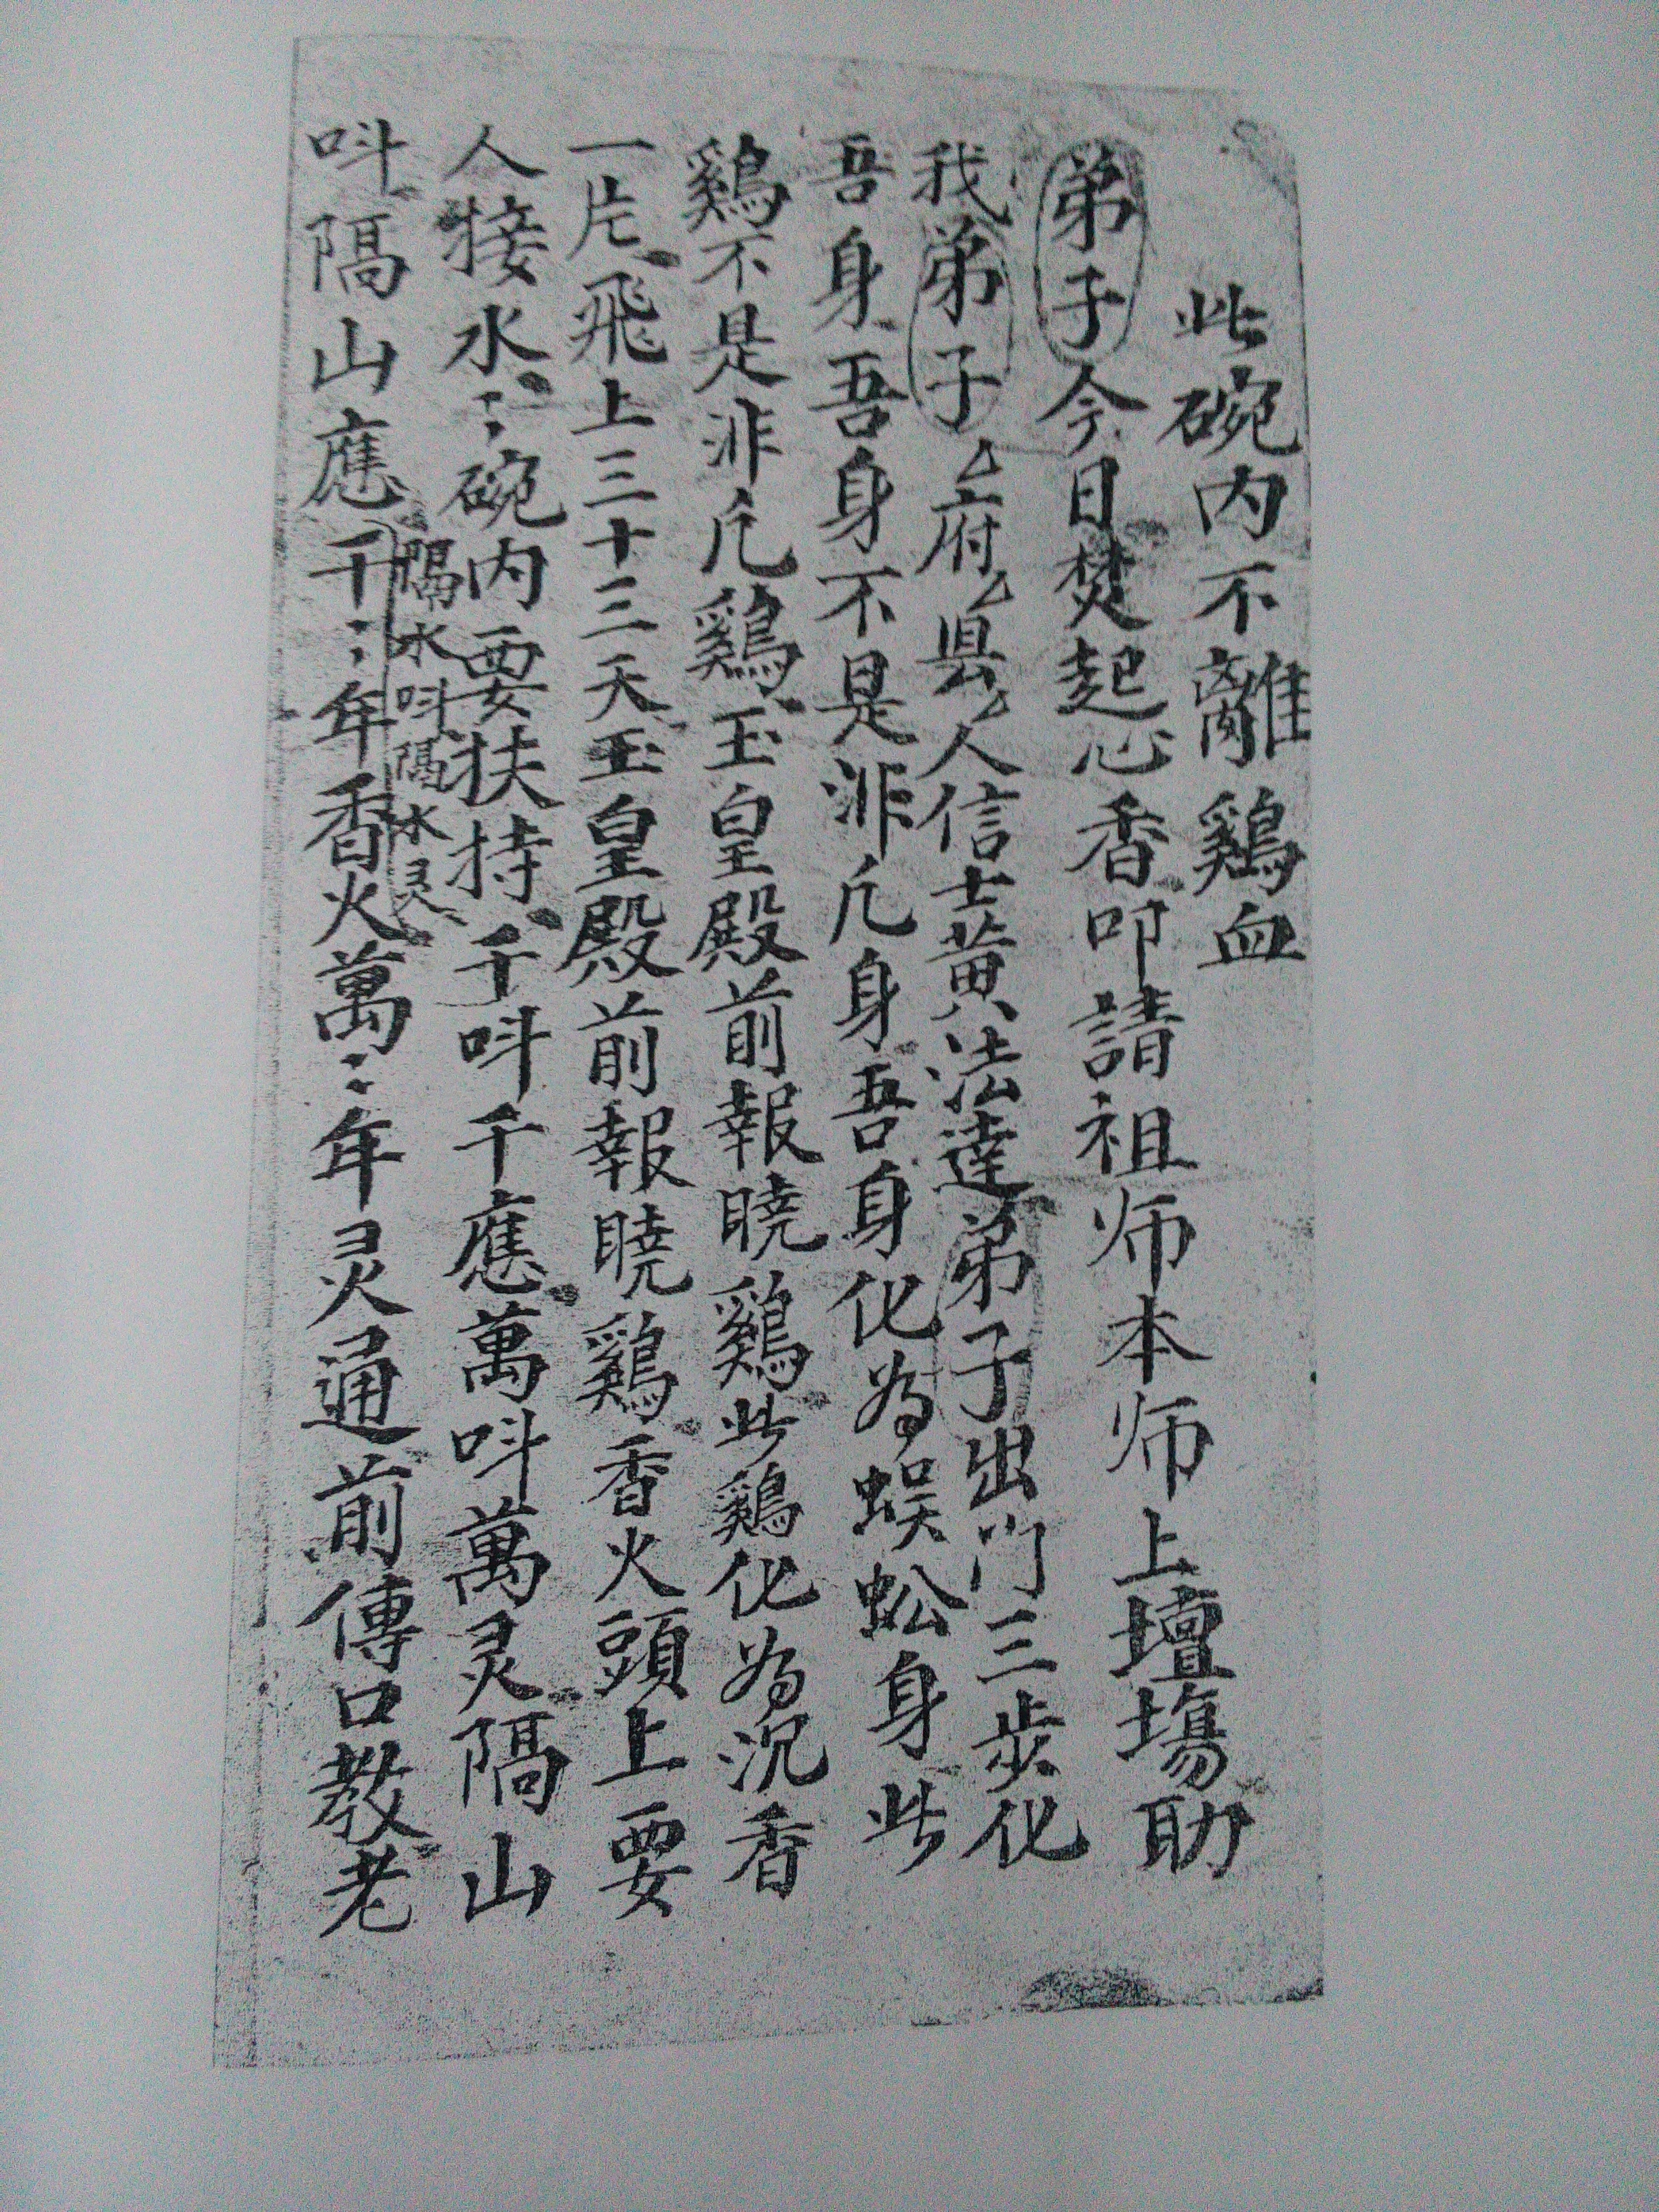 此碗内不離鷄血
弟子今日焚起心香叩請祖师本师上壇塲助
我弟子厶府厶県厶人信士黄法達弟子出门三步化
吾身吾身不是非凢身吾身化为蜈蚣身此
鷄不是非凢鷄玉皇殿前報曉鷄此鷄化为沉香
一片飛上三十三天玉皇殿前報曉鷄香火頭上要
人接水〻碗内要扶持千呌千應萬呌萬灵隔山
隔水呌隔水灵
呌隔山應千〻年香火萬〻年灵通前傳口教老